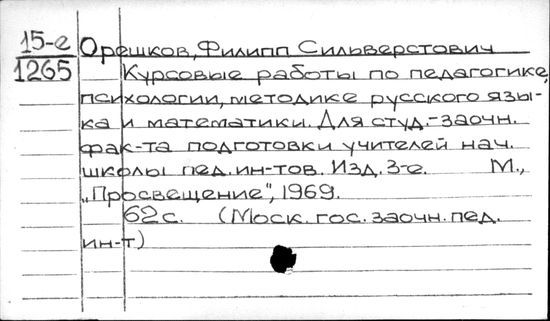 15-е Орешков, Филипп Сильверстович
1265 Курсовые работы по педагогике,
психологии, методике русского язы-
ка и математики. Для студ.-заочн.
фак-та подготовки учителей нач.
школы пед. ин-тов. Изд. 3-е. М.,
„Просвещение", 1969.
62 с. (Моск. гос. заочн. пед.
ин-т)